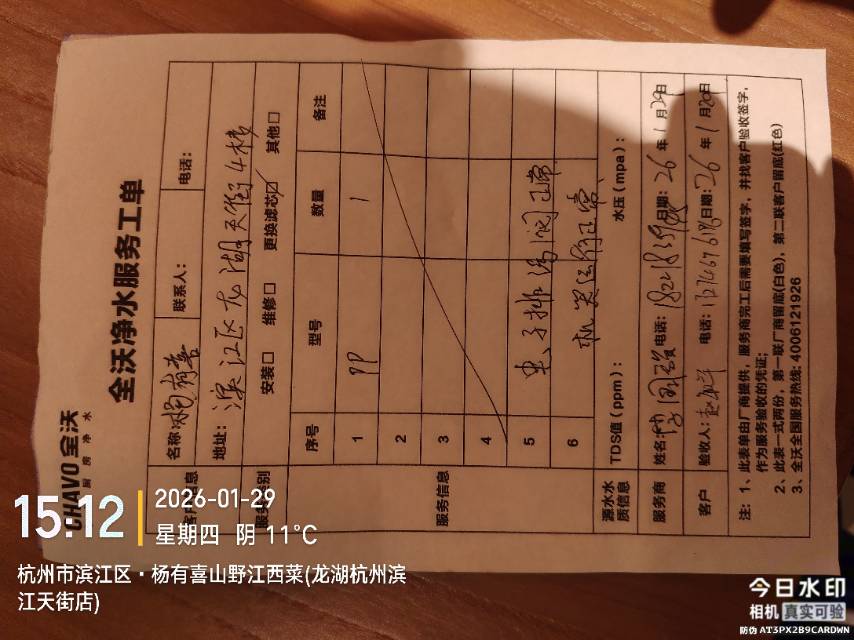 CHAVO 全沃
厨房净水
全沃净水服务工单
客户信息 名称: 杨有喜 联系人: 电话:
地址: 滨江区龙湖天街4楼
服务类别 安装□ 维修□ 更换滤芯☑ 其他□
服务信息 序号 型号 数量 备注
1 PP 1
2
3
4
5 电子排污阀正常
6 机器运行正常
源水水质信息 TDS值(ppm): 水压(mpa):
服务商 姓名: 电话: 日期: 26年1月29日
客户 验收人: 电话: 日期: 26年1月29日
注: 1、此表单由厂商提供,服务商完工后需要填写签字,并找客户验收签字,
作为服务验收的凭证;
2、此表一式两份,第一联厂商留底(白色),第二联客户留底(红色)
3、全沃全国服务热线:4006121926
15:12
2026-01-29
星期四 阴 11°C
杭州市滨江区·杨有喜山野江西菜(龙湖杭州滨
江天街店)
今日水印
相机 真实可验
防伪 AT3PX2B9CARDWN